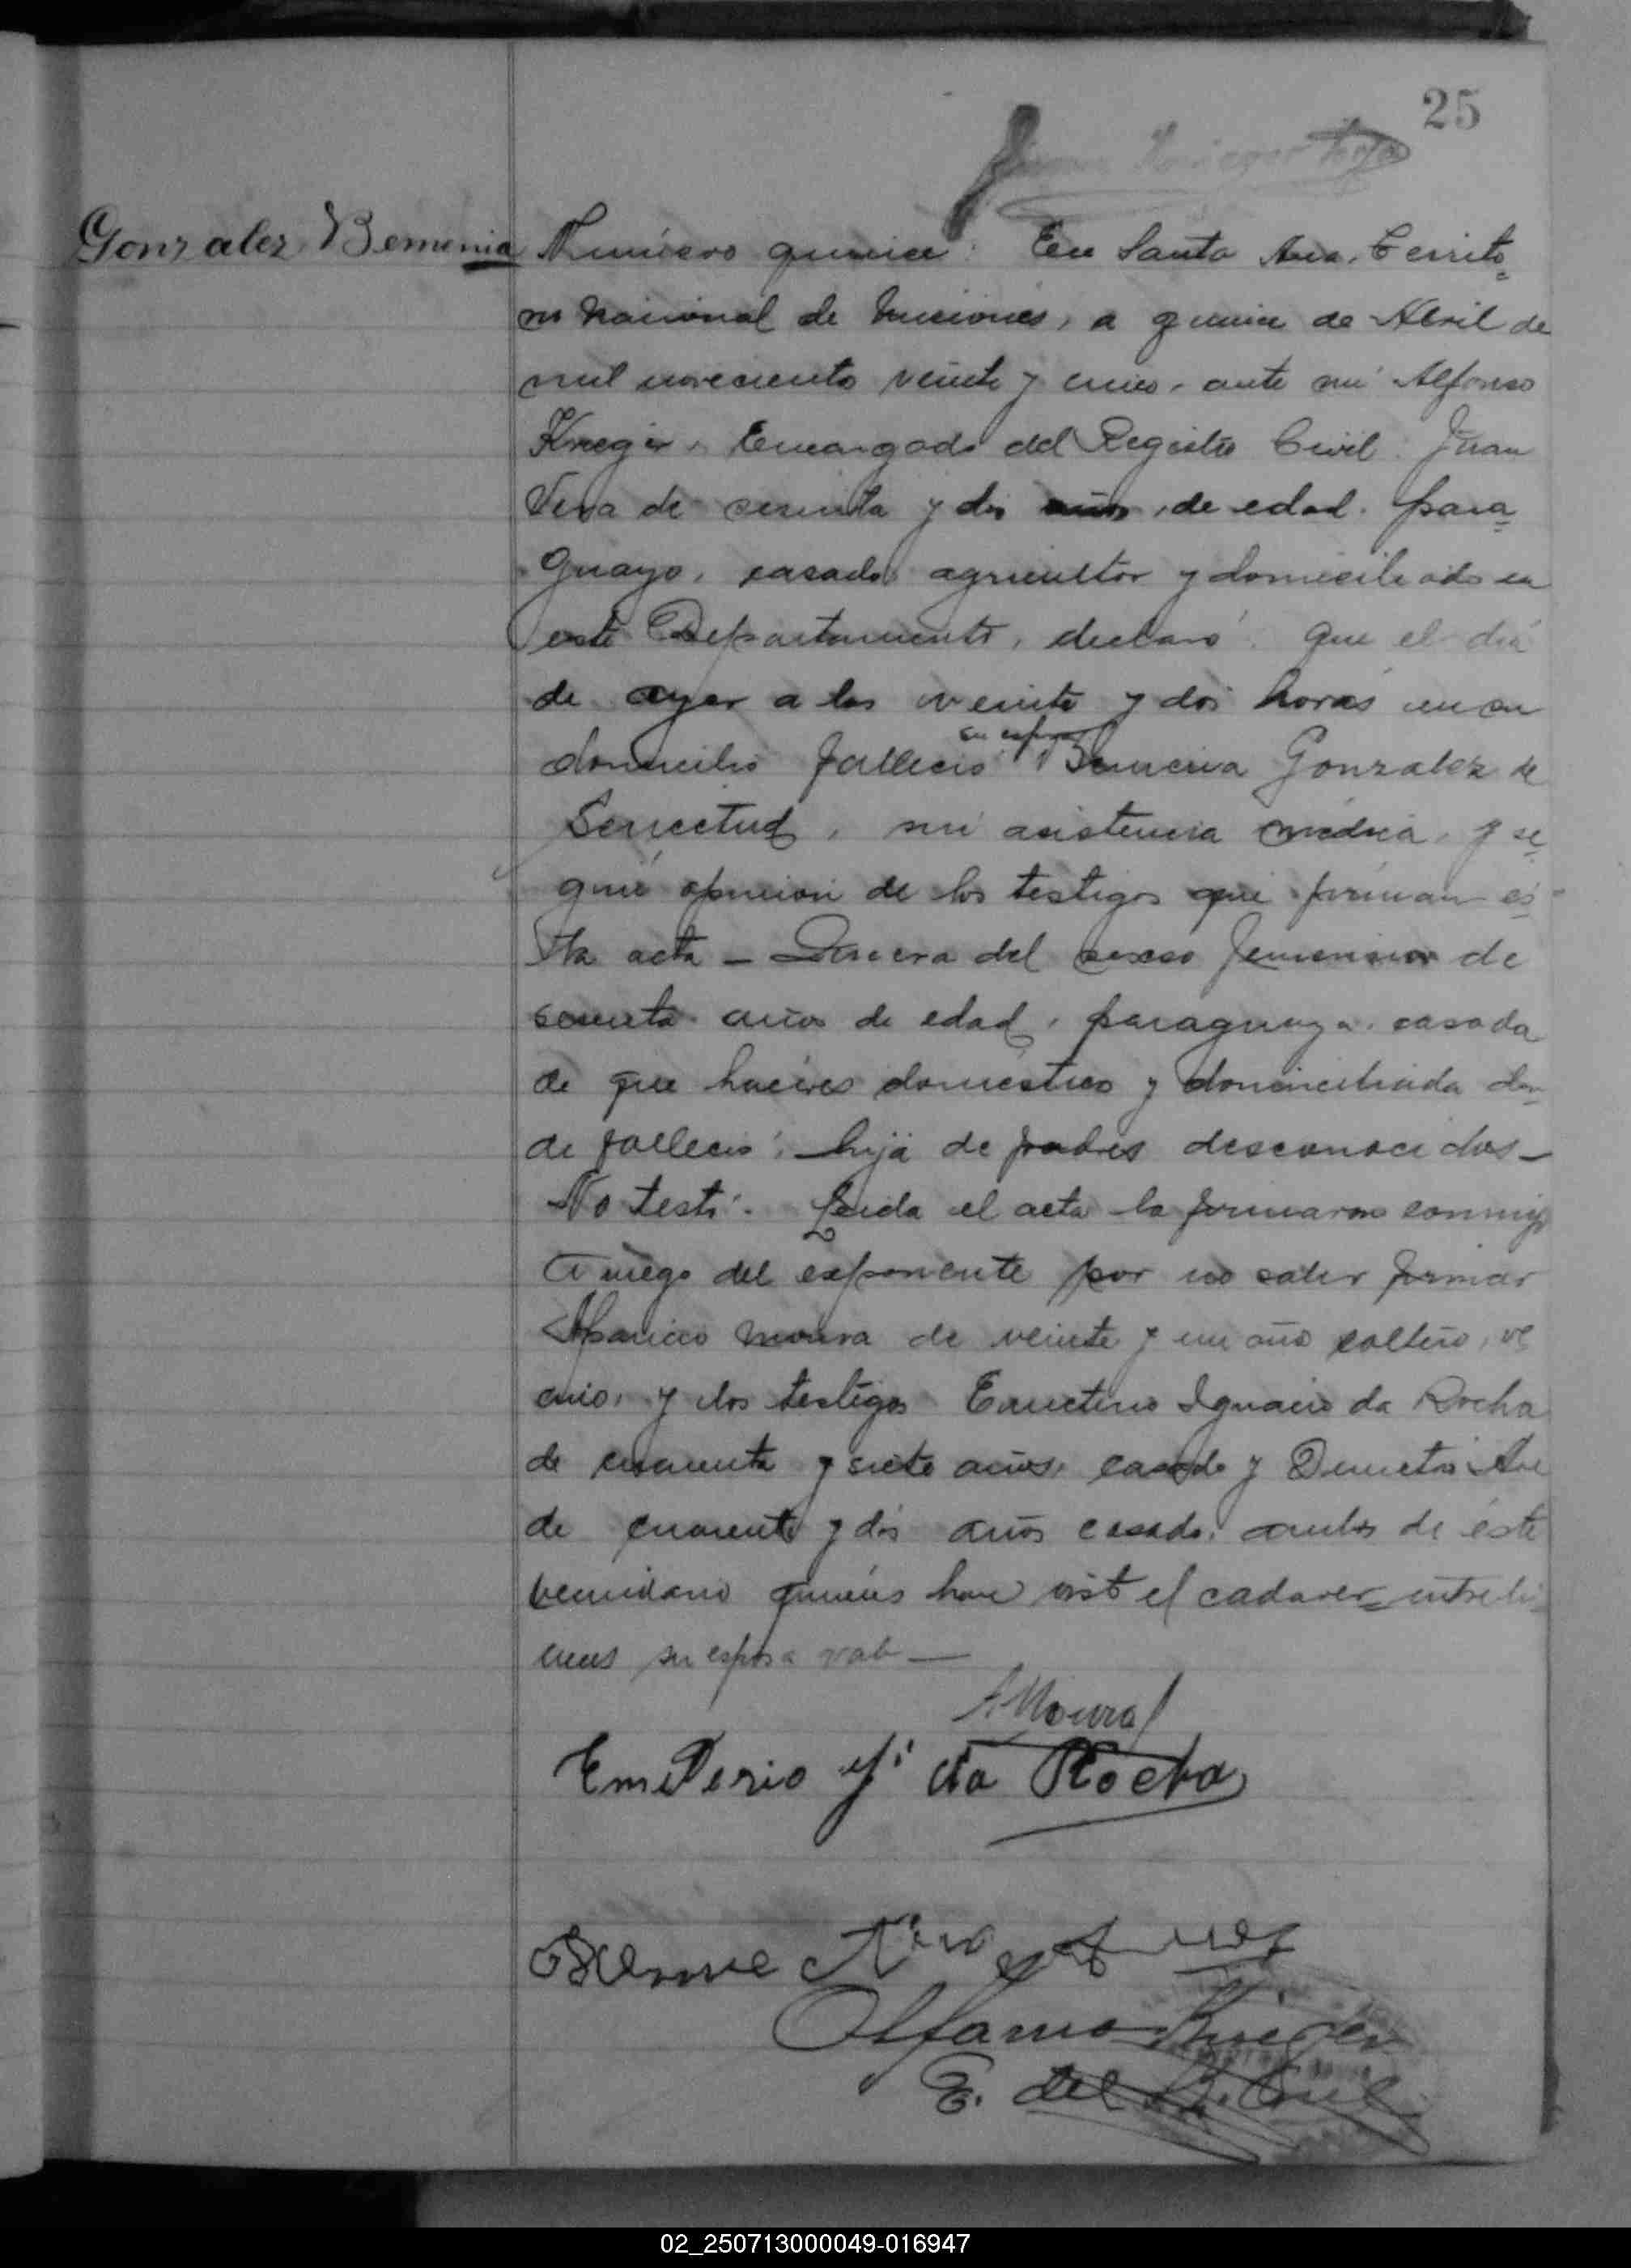 25
Gonzalez Bemenia
Número quince: En Santa Ana, Territo=
rio Nacional de Misiones, a quince de Abril de
mil novecientos veinte y cinco, ante mi Alfonso
Krieger, Encargado del Registro Civil: Juan
Vera de y dos años, de edad, para=
guayo, casado agricultor y domiciliado en
este Departamento, declaró: que el dia
de ayer a las veinte y dos horas en su
domicilio falleció su esposa Bemenia Gonzalez de
Senectud, sin asistencia médica, y se=
gun opinion de los testigos que firman es=
ta acta — del sexso femenino de
años de edad, paraguaya, casada
de que haceres domesticos y domiciliada don=
de falleció; hija de padres desconocidos —
No testó. Leida el acta la firmaron conmigo
a ruego del exponente por no saber firmar
Aparicio Moura de veinte y un año soltero, ve
cino, y los testigos Ignacio da Rocha
de cuarenta y siete años, casado y Demetrio
de cuarenta y dos años casado, ambos de éste
vecindario quienes han visto el cadaver = entreli=
neas su esposa vale —
A Moura
Emeterio Y. da Rocha
Alfonso Krieger
E. del R. Civil
02_250713000049-016947